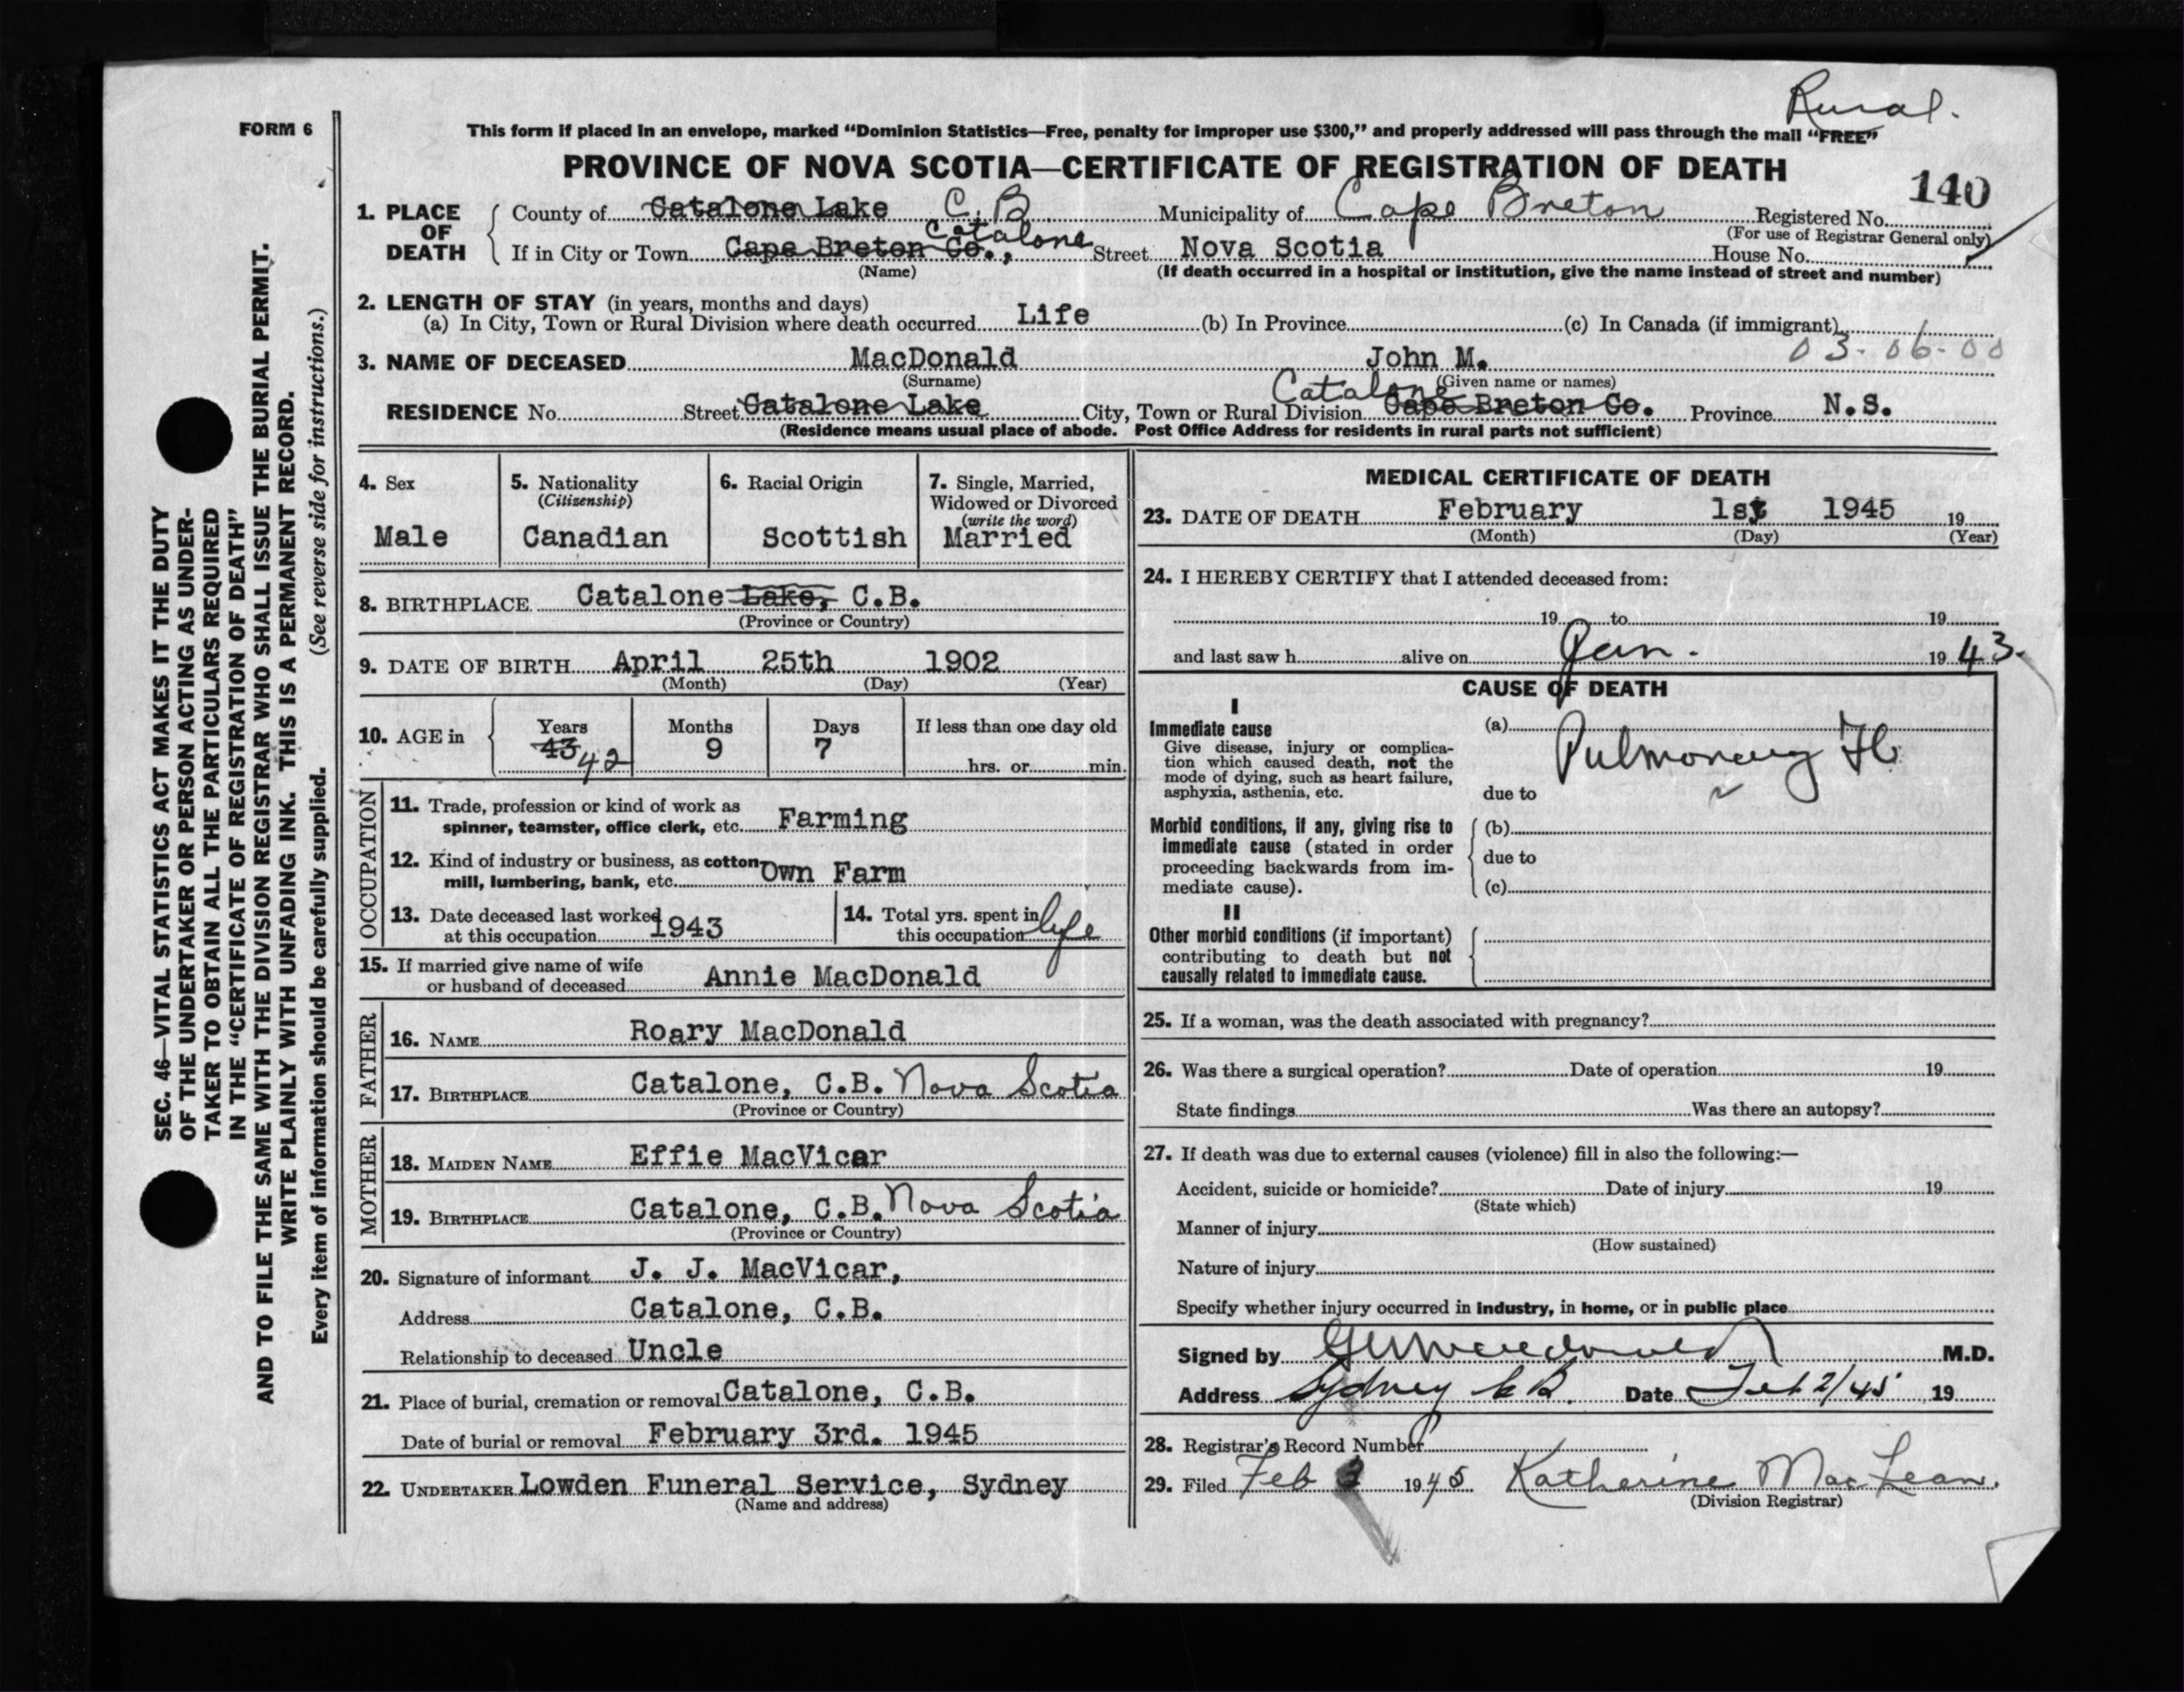 Rural.
FORM 6
This form if placed in an envelope, marked "Dominion Statistics—Free, penalty for improper use $300," and properly addressed will pass through the mail "FREE"
PROVINCE OF NOVA SCOTIA—CERTIFICATE OF REGISTRATION OF DEATH
140
1. PLACE OF DEATH County of Catalone Lake C. B Municipality of Cape Breton Registered No.
(For use of Registrar General only)
If in City or Town Cape Breton Co., Catalone Street Nova Scotia House No.
(Name) (If death occurred in a hospital or institution, give the name instead of street and number)
2. LENGTH OF STAY (in years, months and days)
(a) In City, Town or Rural Division where death occurred Life (b) In Province (c) In Canada (if immigrant)
03-06-00
3. NAME OF DECEASED MacDonald John M.
(Surname) (Given name or names)
RESIDENCE No. Street Catalone Lake City, Town or Rural Division Cape Breton Co. Catalone Province N.S.
(Residence means usual place of abode. Post Office Address for residents in rural parts not sufficient)
4. Sex
Male
5. Nationality
(Citizenship)
Canadian
6. Racial Origin
Scottish
7. Single, Married,
Widowed or Divorced
(write the word)
Married
8. BIRTHPLACE Catalone Lake, C.B.
(Province or Country)
9. DATE OF BIRTH April 25th 1902
(Month) (Day) (Year)
10. AGE in Years Months Days If less than one day old
43 42 9 7 hrs. or min.
OCCUPATION
11. Trade, profession or kind of work as
spinner, teamster, office clerk, etc. Farming
12. Kind of industry or business, as cotton
mill, lumbering, bank, etc. Own Farm
13. Date deceased last worked
at this occupation 1943
14. Total yrs. spent in
this occupation life
15. If married give name of wife
or husband of deceased Annie MacDonald
FATHER
16. NAME Roary MacDonald
17. BIRTHPLACE Catalone, C.B. Nova Scotia
(Province or Country)
MOTHER
18. MAIDEN NAME Effie MacVicar
19. BIRTHPLACE Catalone, C.B. Nova Scotia
(Province or Country)
20. Signature of informant J. J. MacVicar,
Address Catalone, C.B.
Relationship to deceased Uncle
21. Place of burial, cremation or removal Catalone, C.B.
Date of burial or removal February 3rd. 1945
22. UNDERTAKER Lowden Funeral Service, Sydney
(Name and address)
MEDICAL CERTIFICATE OF DEATH
23. DATE OF DEATH February 1st 1945 19
(Month) (Day) (Year)
24. I HEREBY CERTIFY that I attended deceased from:
19 to 19
and last saw h alive on Jan. 19 43.
CAUSE OF DEATH
I
Immediate cause
Give disease, injury or complica-
tion which caused death, not the
mode of dying, such as heart failure,
asphyxia, asthenia, etc.
(a) Pulmonary
due to
Morbid conditions, if any, giving rise to
immediate cause (stated in order
proceeding backwards from im-
mediate cause).
(b)
due to
(c)
II
Other morbid conditions (if important)
contributing to death but not
causally related to immediate cause.
25. If a woman, was the death associated with pregnancy?
26. Was there a surgical operation? Date of operation 19
State findings Was there an autopsy?
27. If death was due to external causes (violence) fill in also the following:—
Accident, suicide or homicide? Date of injury 19
(State which)
Manner of injury
(How sustained)
Nature of injury
Specify whether injury occurred in industry, in home, or in public place
Signed by M.D.
Address Sydney C B. Date Feb 2/45 19
28. Registrar's Record Number
29. Filed Feb 1945 Katherine MacLean.
(Division Registrar)
SEC. 46—VITAL STATISTICS ACT MAKES IT THE DUTY
OF THE UNDERTAKER OR PERSON ACTING AS UNDER-
TAKER TO OBTAIN ALL THE PARTICULARS REQUIRED
IN THE "CERTIFICATE OF REGISTRATION OF DEATH"
AND TO FILE THE SAME WITH THE DIVISION REGISTRAR WHO SHALL ISSUE THE BURIAL PERMIT.
WRITE PLAINLY WITH UNFADING INK. THIS IS A PERMANENT RECORD.
Every item of information should be carefully supplied. (See reverse side for instructions.)